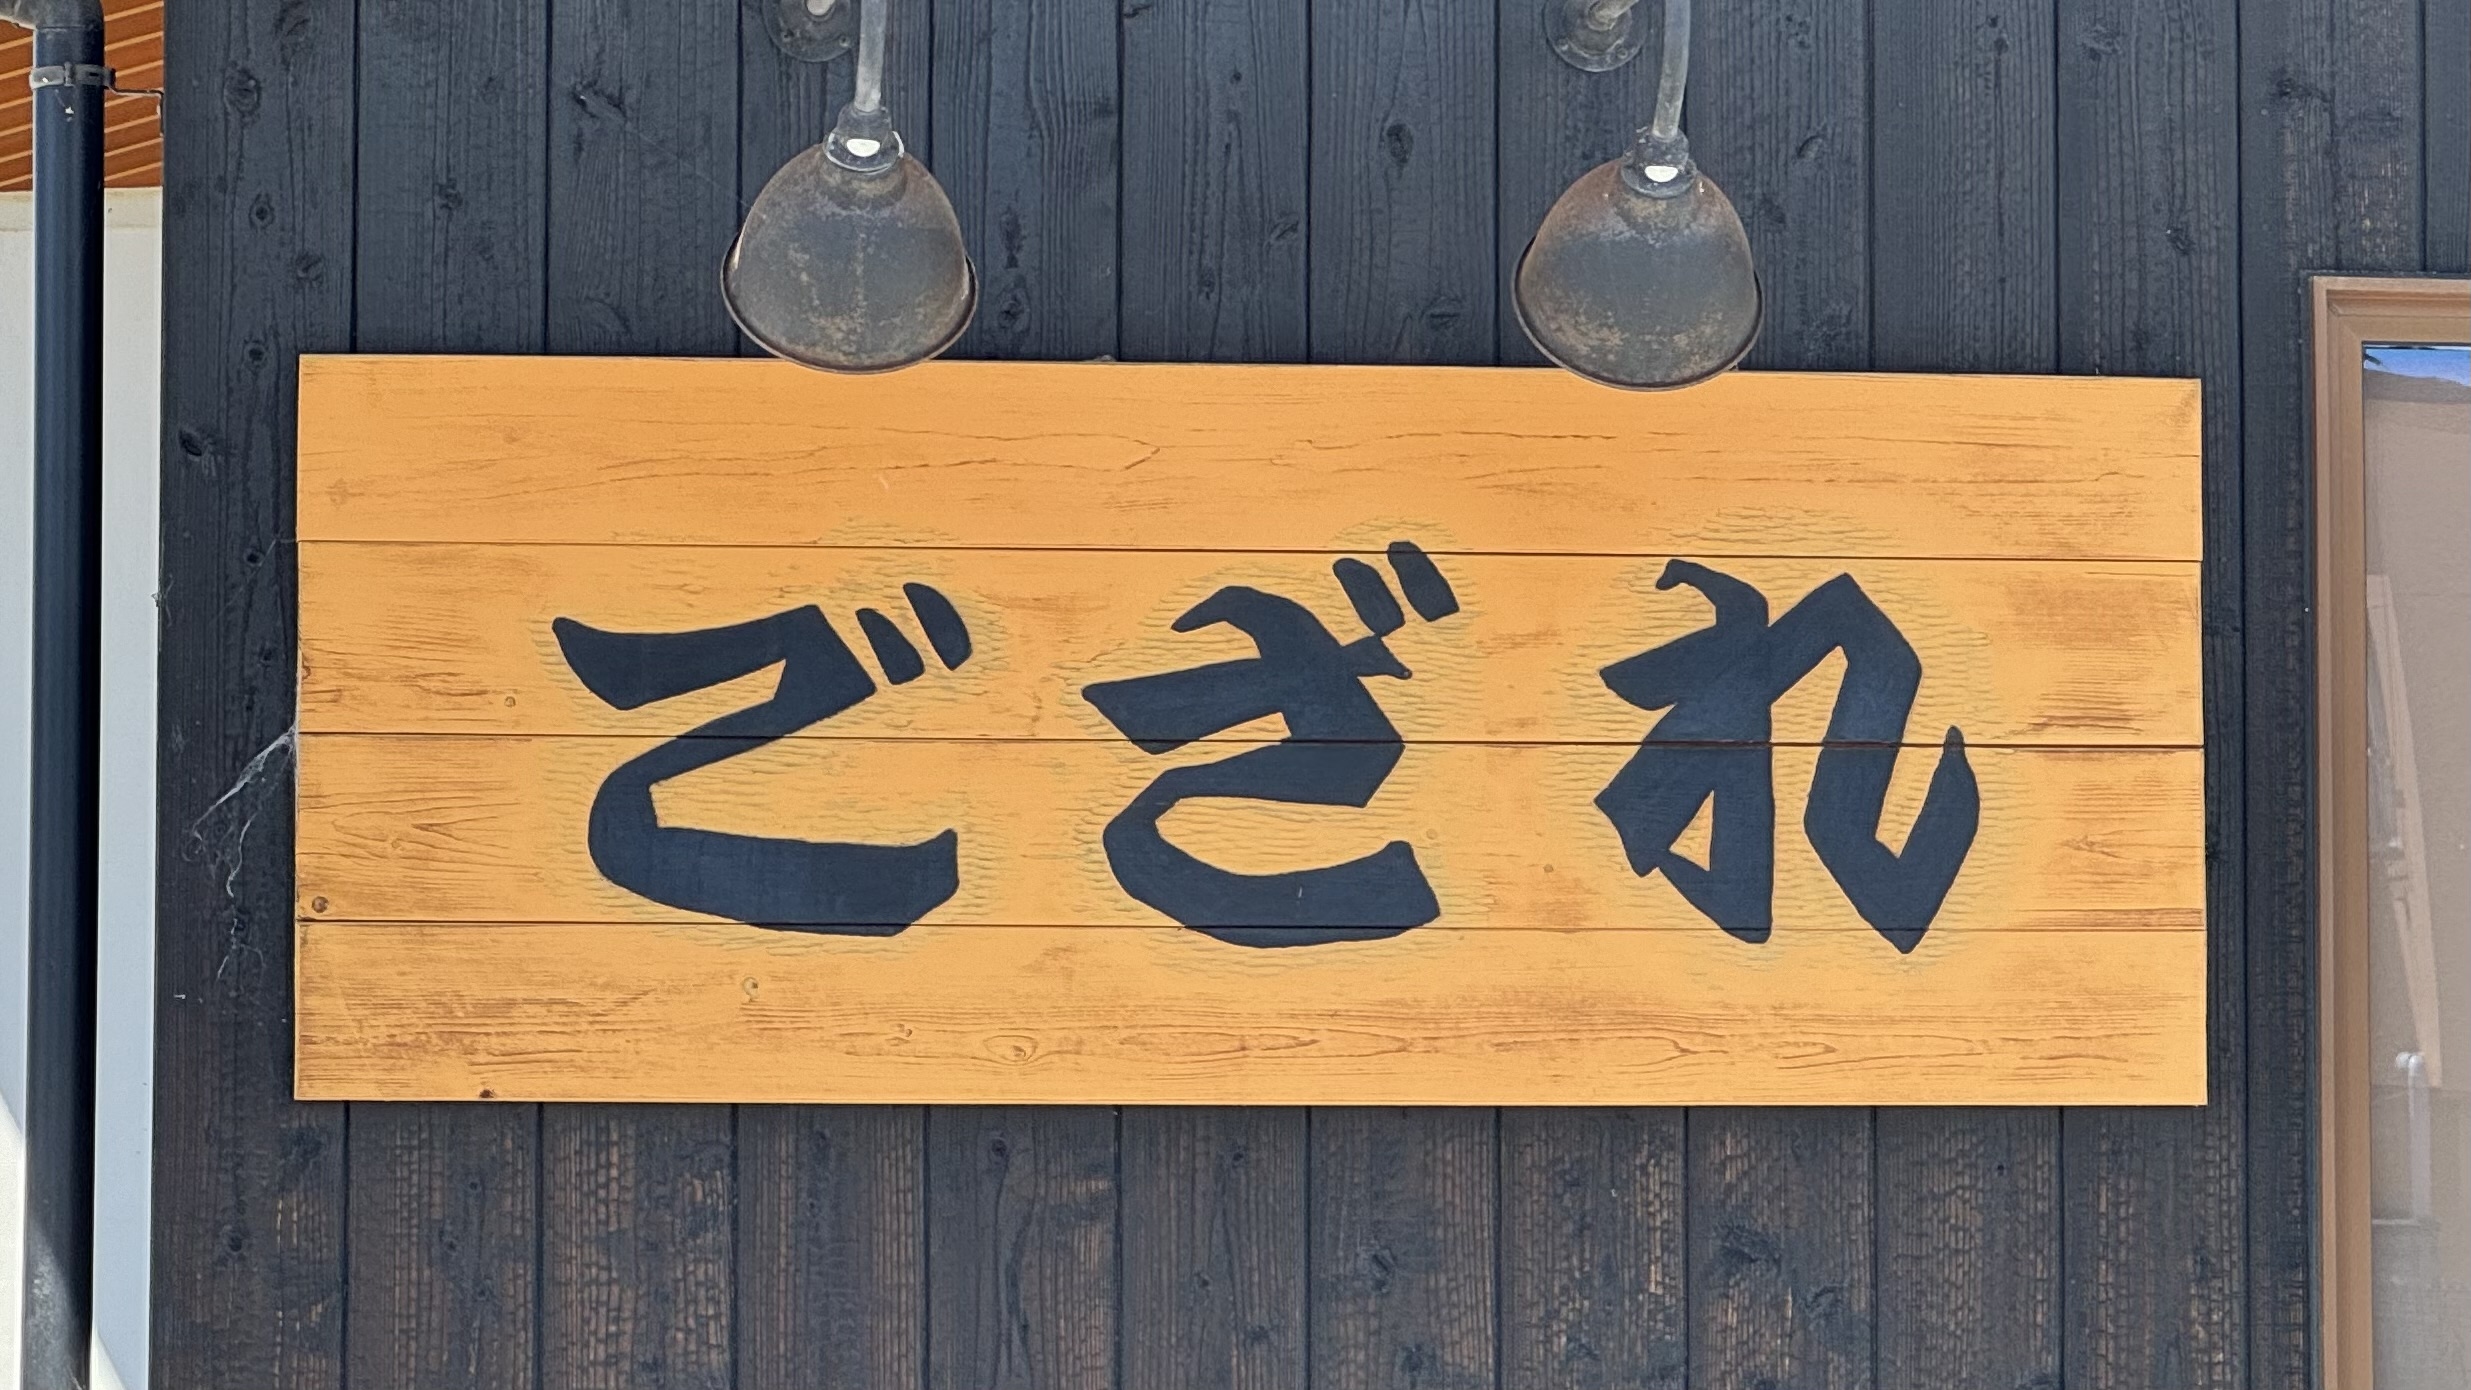 ござれ